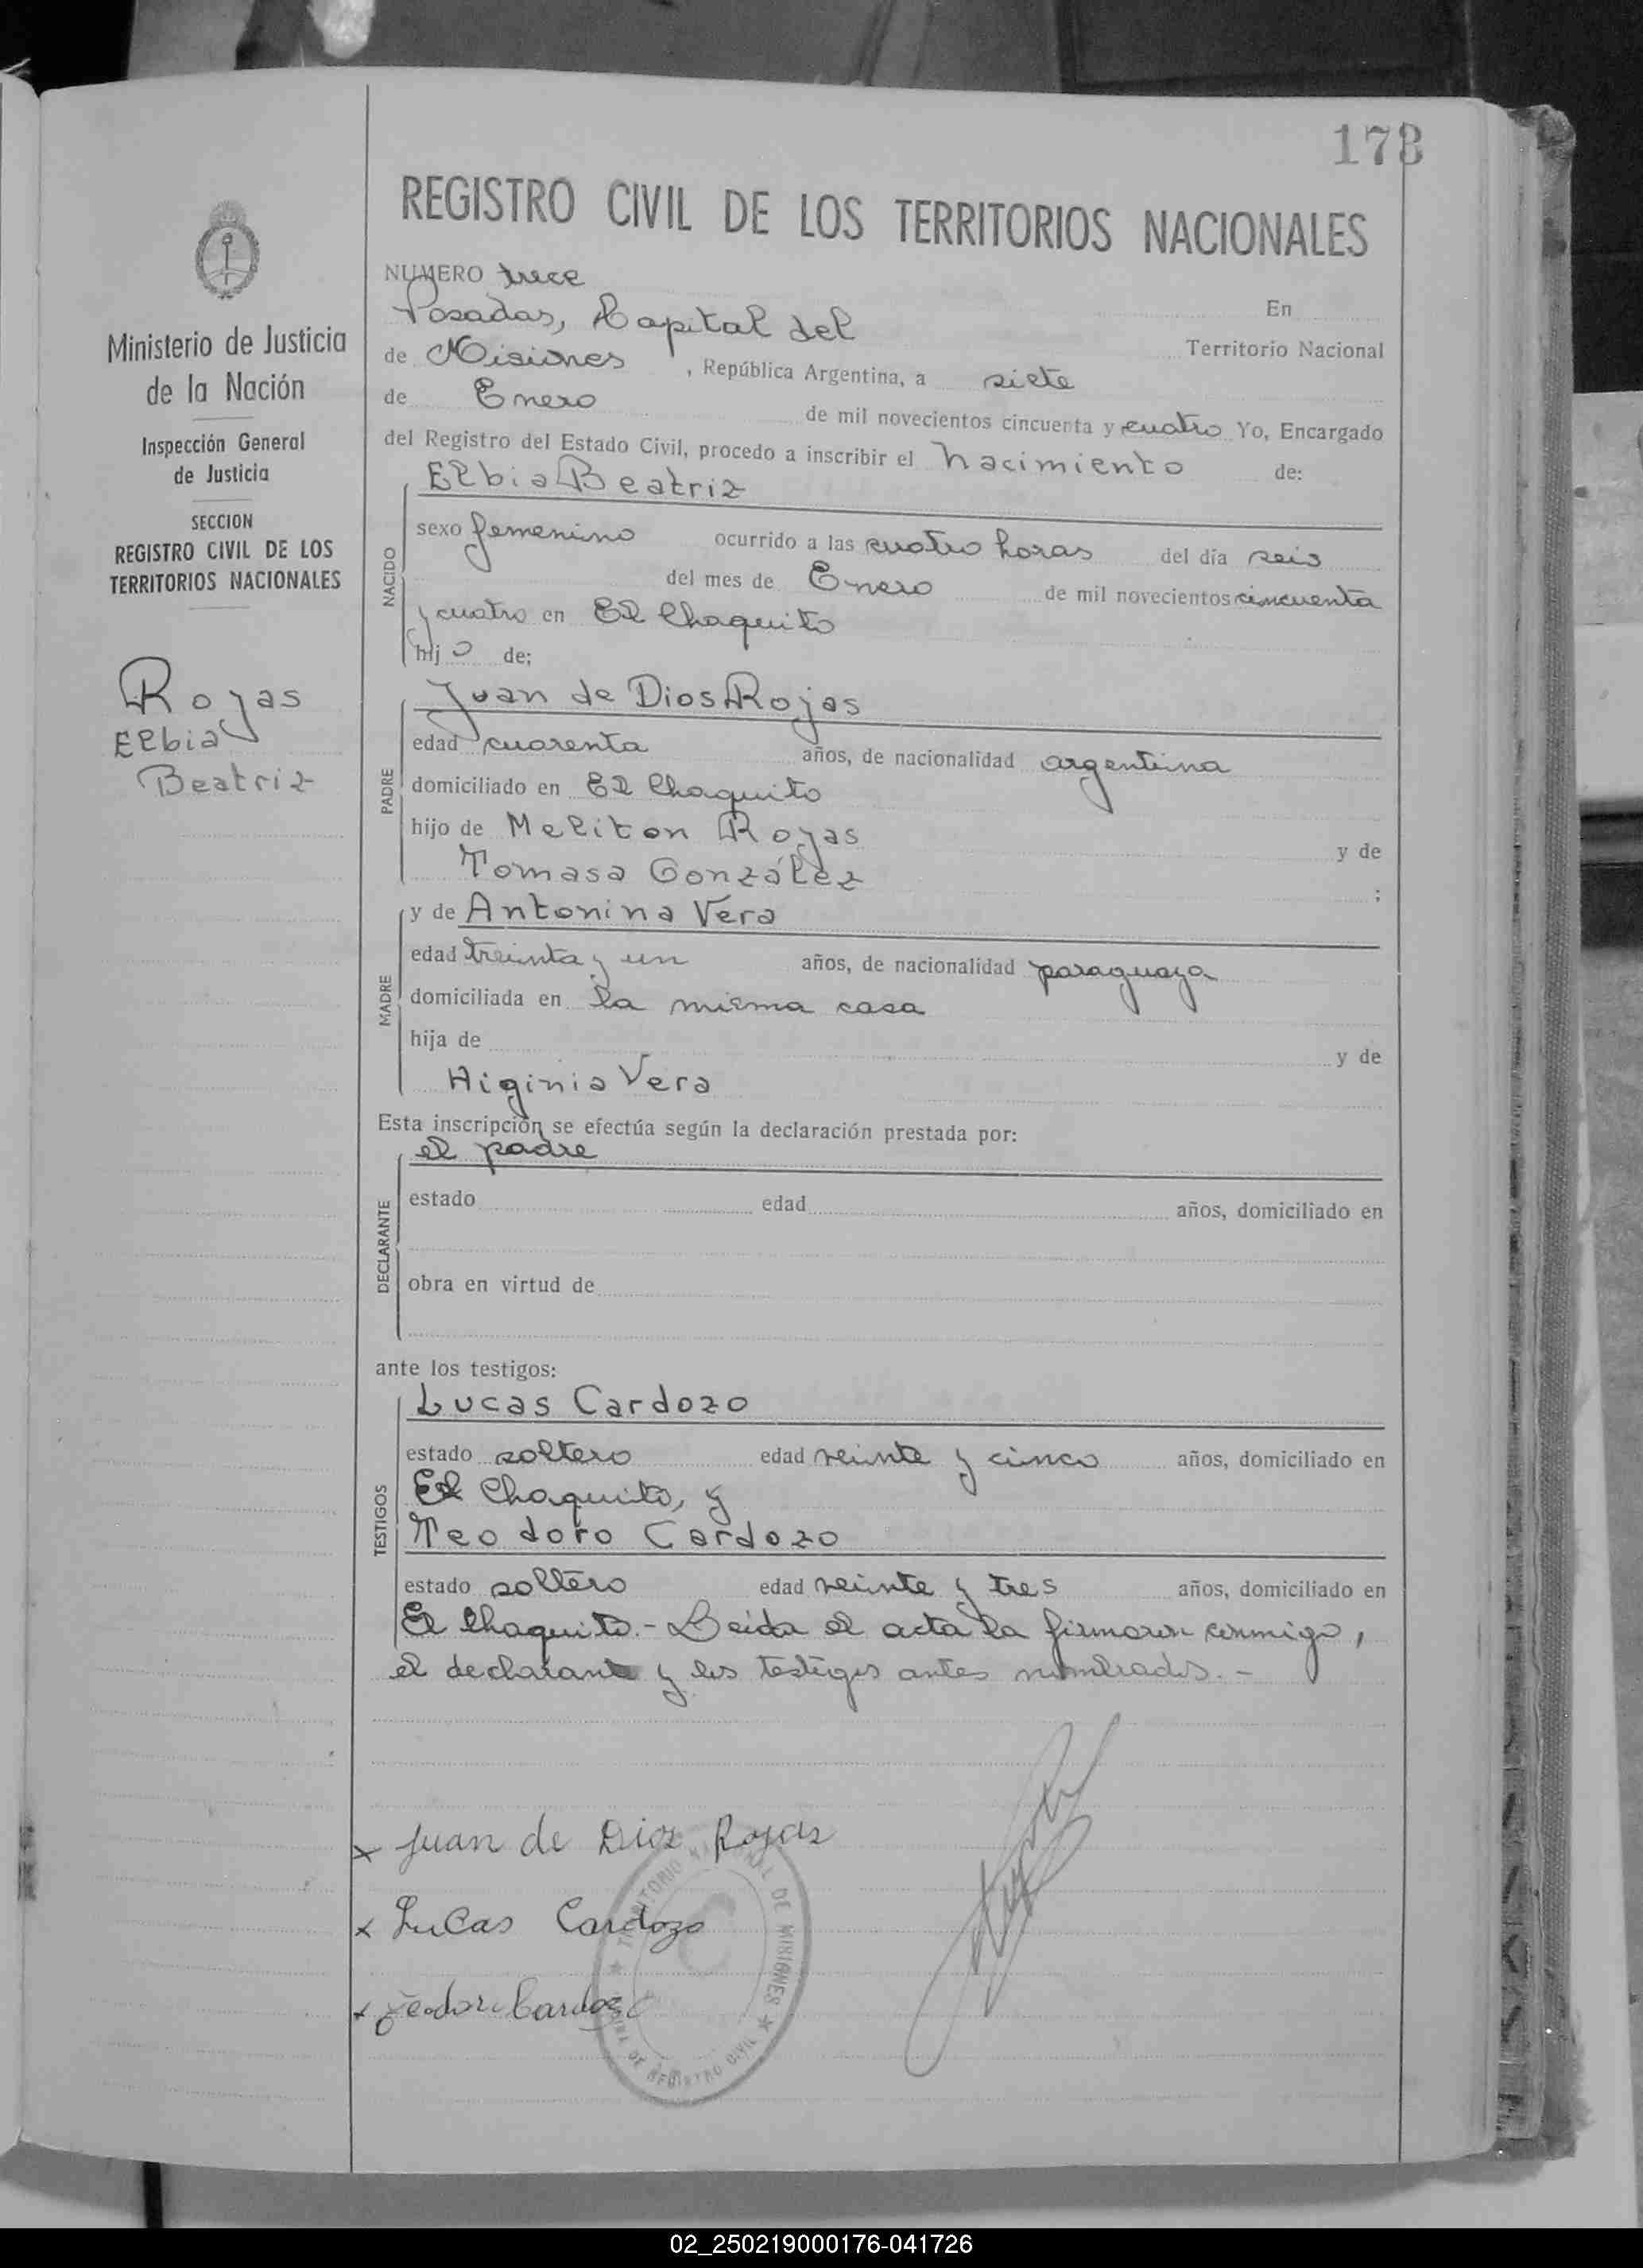 173
REGISTRO CIVIL DE LOS TERRITORIOS NACIONALES
Ministerio de Justicia
de la Nación
Inspección General
de Justicia
SECCION
REGISTRO CIVIL DE LOS
TERRITORIOS NACIONALES
Rojas
Elbia
Beatriz
NUMERO trece
En
Posadas, Capital del
Territorio Nacional
de Misiones, República Argentina, a siete
de Enero de mil novecientos cincuenta y cuatro Yo, Encargado
del Registro del Estado Civil, procedo a inscribir el nacimiento de:
NACIDO
Elbia Beatriz
sexo femenino ocurrido a las cuatro horas del día seis
del mes de Enero de mil novecientos cincuenta
y cuatro en El Chaquito
hij o de;
PADRE
Juan de Dios Rojas
edad cuarenta años, de nacionalidad argentina
domiciliado en El Chaquito
hijo de Meliton Rojas y de
Tomasa González ;
MADRE
y de Antonina Vera
edad treinta y un años, de nacionalidad paraguaya
domiciliada en la misma casa
hija de y de
Higinia Vera
Esta inscripción se efectúa según la declaración prestada por:
DECLARANTE
el padre
estado edad años, domiciliado en
obra en virtud de
ante los testigos:
TESTIGOS
Lucas Cardozo
estado soltero edad veinte y cinco años, domiciliado en
El Chaquito, y
Teodoro Cardozo
estado soltero edad veinte y tres años, domiciliado en
El Chaquito.- Leida el acta la firmaron conmigo,
el declarante y los testigos antes nombrados.-
x Juan de Dios Rojas
x Lucas Cardozo
x Teodoro Cardozo
TERRITORIO NACIONAL DE MISIONES
DE REGISTRO CIVIL
02_250219000176-041726